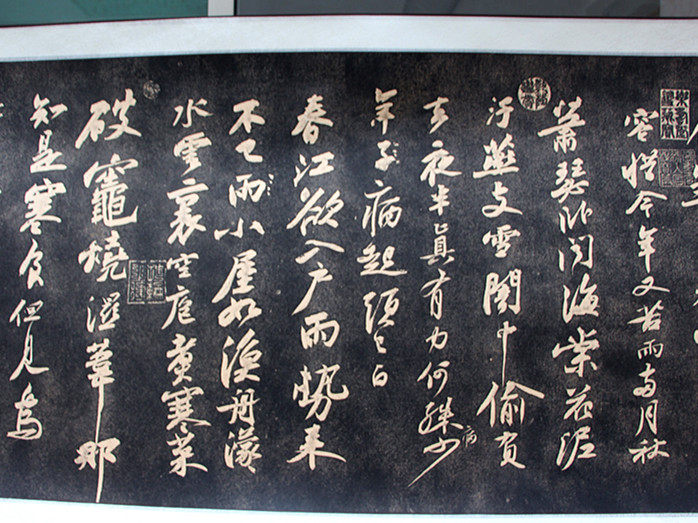 容惜今年又苦雨两月秋
萧瑟卧闻海棠花泥
汙燕支雪闇中偷负
去夜半真有力何殊少
病
年子病起须已白
春江欲入户雨势来
不已雨小屋如渔舟濛
水云裏空庖煮寒菜
破竈烧湿苇那
知是寒食但见乌